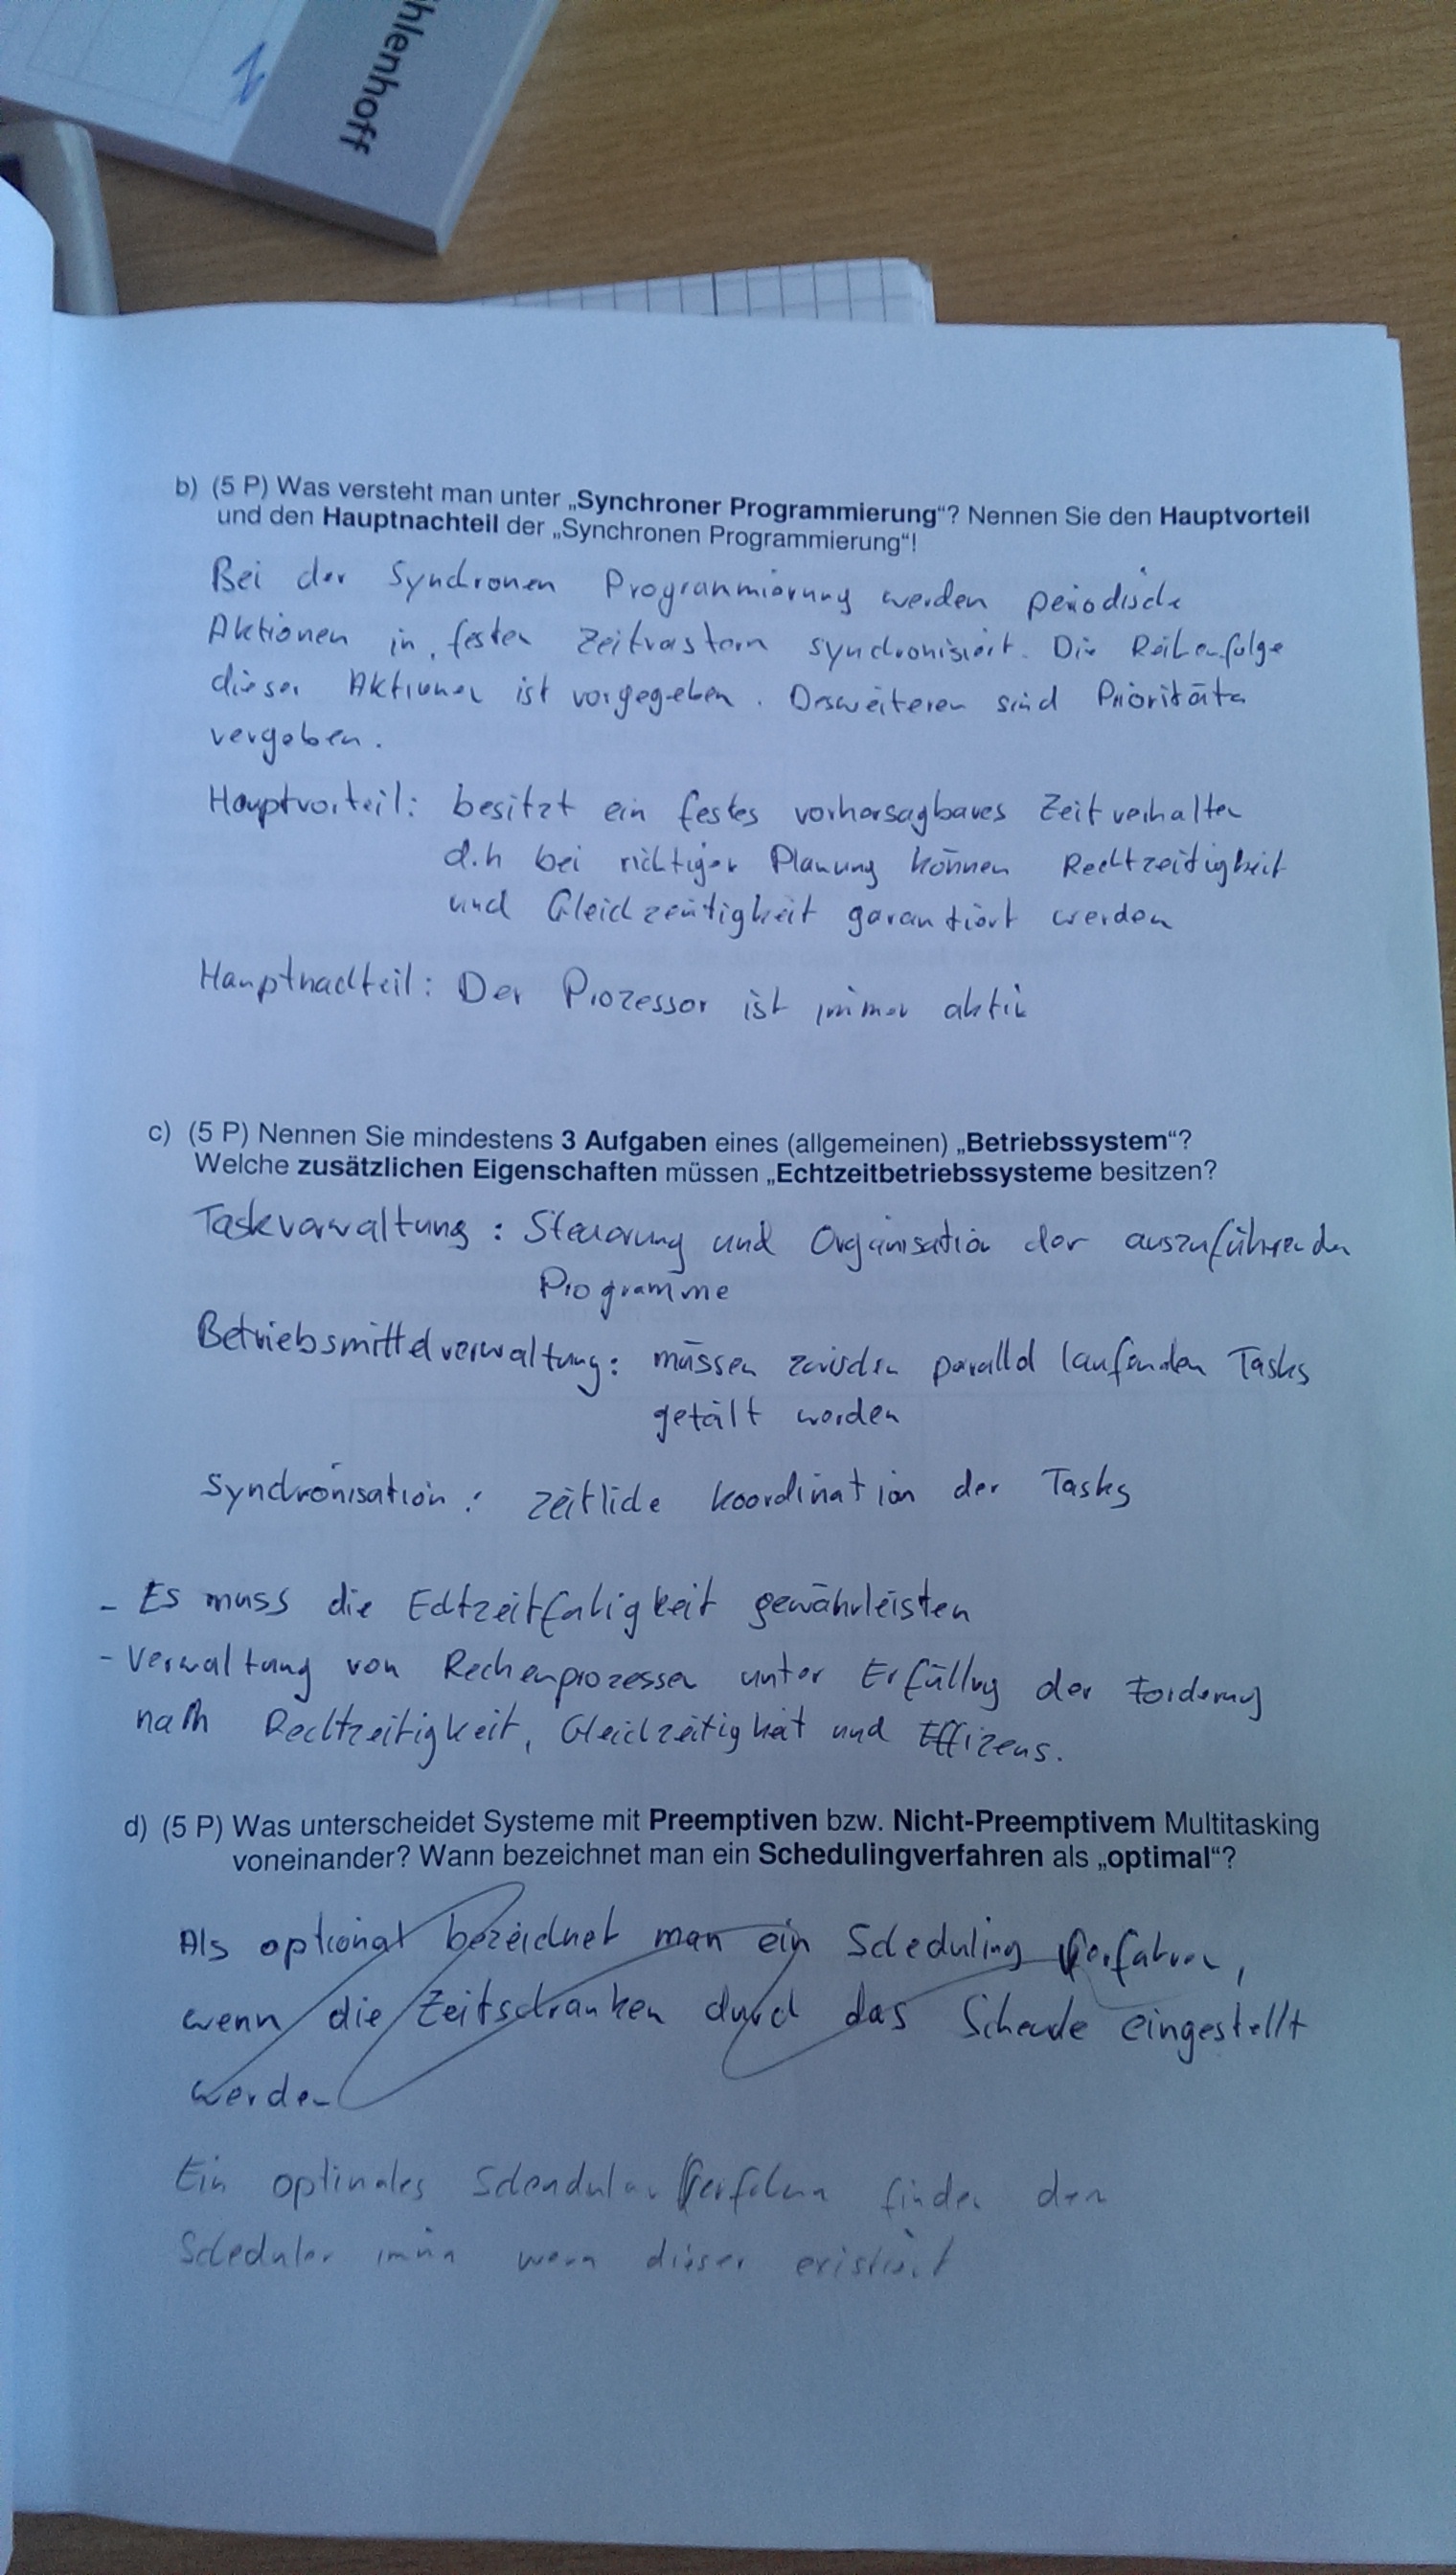 hlenhoff
b) (5 P) Was versteht man unter „Synchroner Programmierung“? Nennen Sie den Hauptvorteil
und den Hauptnachteil der „Synchronen Programmierung“!
Bei der Synchronen Programmierung werden periodische
Aktionen in festen Zeitrastern synchronisiert. Die Reihenfolge
dieser Aktionen ist vorgegeben. Desweiteren sind Prioritäten
vergeben.
Hauptvorteil: besitzt ein festes vorhersagbares Zeitverhalten
d.h bei richtiger Planung können Rechtzeitigkeit
und Gleichzeitigkeit garantiert werden
Hauptnachteil: Der Prozessor ist immer aktiv
c) (5 P) Nennen Sie mindestens 3 Aufgaben eines (allgemeinen) „Betriebssystem“?
Welche zusätzlichen Eigenschaften müssen „Echtzeitbetriebssysteme besitzen?
Taskverwaltung: Steuerung und Organisation der auszuführenden
Programme
Betriebsmittelverwaltung: müssen zwischen parallel laufenden Tasks
geteilt werden
Synchronisation: zeitliche Koordination der Tasks
- Es muss die Echtzeitfähigkeit gewährleisten
- Verwaltung von Rechenprozessen unter Erfüllung der Forderung
nach Rechtzeitigkeit, Gleichzeitigkeit und Effizens.
d) (5 P) Was unterscheidet Systeme mit Preemptiven bzw. Nicht-Preemptivem Multitasking
voneinander? Wann bezeichnet man ein Schedulingverfahren als „optimal“?
Als optional bezeichnet man ein Scheduling Verfahren,
wenn die Zeitschranken durch das eingestellt
werden
Ein optimales Verfahren finden den
Scheduler immer wenn dieser existiert